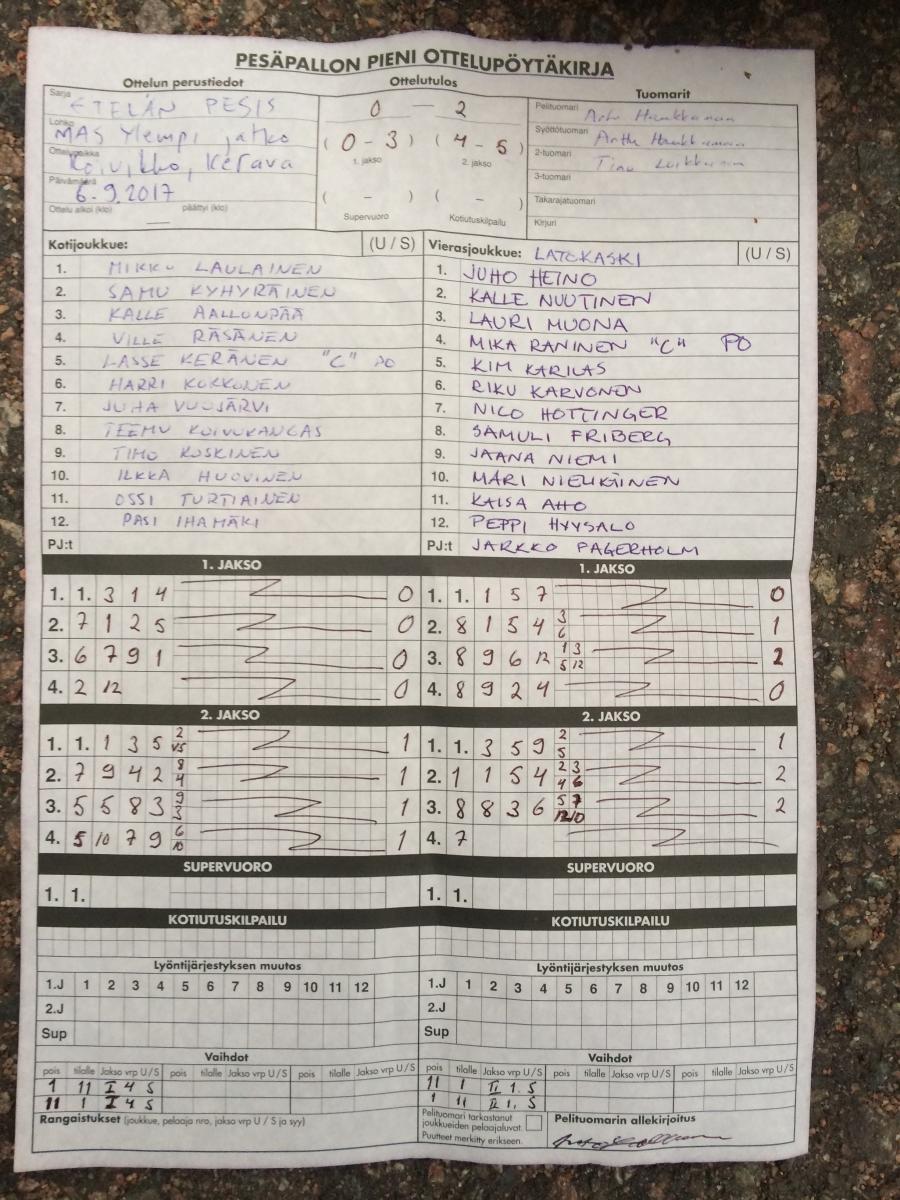 PESÄPALLON PIENI OTTELUPÖYTÄKIRJA
Ottelun perustiedot Ottelutulos Tuomarit
Sarja ETELÄN PESIS
Lohko MAS Ylempi jatko
Ottelupaikka Koivikko, Kerava
Päivämäärä 6.9.2017
Ottelu alkoi (klo) — päättyi (klo)
0 — 2
(0 - 3) (4 - 5)
1. jakso 2. jakso
( - ) ( - )
Supervuoro Kotiutuskilpailu
Pelituomari
Syöttötuomari
2-tuomari
3-tuomari
Takarajatuomari
Kirjuri
Kotijoukkue: (U / S)
1. MIKKU LAULAINEN
2. SAMU KYHYRÄINEN
3. KALLE AALLONPÄÄ
4. VILLE RÄSÄNEN
5. LASSE KERÄNEN "C" PO
6. HARRI KOKKONEN
7. JUHA VUOJÄRVI
8. TEEMU KOIVUKANGAS
9. TIMO KOSKINEN
10. ILKKA HUOVINEN
11. OSSI TURTIAINEN
12. PASI IHAMÄKI
PJ:t
Vierasjoukkue: LATOKASKI (U / S)
1. JUHO HEINO
2. KALLE NUUTINEN
3. LAURI MUONA
4. MIKA RANINEN "C" PO
5. KIM KARILAS
6. RIKU KARVONEN
7. NICO HOTTINGER
8. SAMULI FRIBERG
9. JAANA NIEMI
10. MARI NIELIKÄINEN
11. KAISA AHO
12. PEPPI HYYSALO
PJ:t JARKKO PAGERHOLM
1. JAKSO 1. JAKSO
1. 1. 3 1 4 0 1. 1. 1 5 7 0
2. 7 1 2 5 0 2. 8 1 5 4 3 6 1
3. 6 7 9 1 0 3. 8 9 6 12 1 3 5 12 2
4. 2 12 0 4. 8 9 2 4 0
2. JAKSO 2. JAKSO
1. 1. 1 3 5 2 V5 1 1. 1. 3 5 9 2 5 1
2. 7 9 4 2 8 4 1 2. 1 1 5 4 2 3 4 6 2
3. 5 5 8 3 9 3 1 3. 8 8 3 6 5 7 12 10 2
4. 5 10 7 9 6 10 1 4. 7
SUPERVUORO SUPERVUORO
1. 1. 1. 1.
KOTIUTUSKILPAILU KOTIUTUSKILPAILU
Lyöntijärjestyksen muutos Lyöntijärjestyksen muutos
1.J 1 2 3 4 5 6 7 8 9 10 11 12 1.J 1 2 3 4 5 6 7 8 9 10 11 12
2.J 2.J
Sup Sup
Vaihdot Vaihdot
pois tilalle Jakso vrp U / S pois tilalle Jakso vrp U / S pois tilalle Jakso vrp U / S pois tilalle Jakso vrp U / S pois tilalle Jakso vrp U / S pois tilalle Jakso vrp U / S
1 11 I 4 S 11 1 II 1. S
11 1 I 4 S 1 11 II 1. S
Rangaistukset (joukkue, pelaaja nro, jakso vrp U / S ja syy)
Pelituomari tarkastanut
joukkueiden pelaajaluvat.
Puutteet merkitty erikseen.
Pelituomarin allekirjoitus